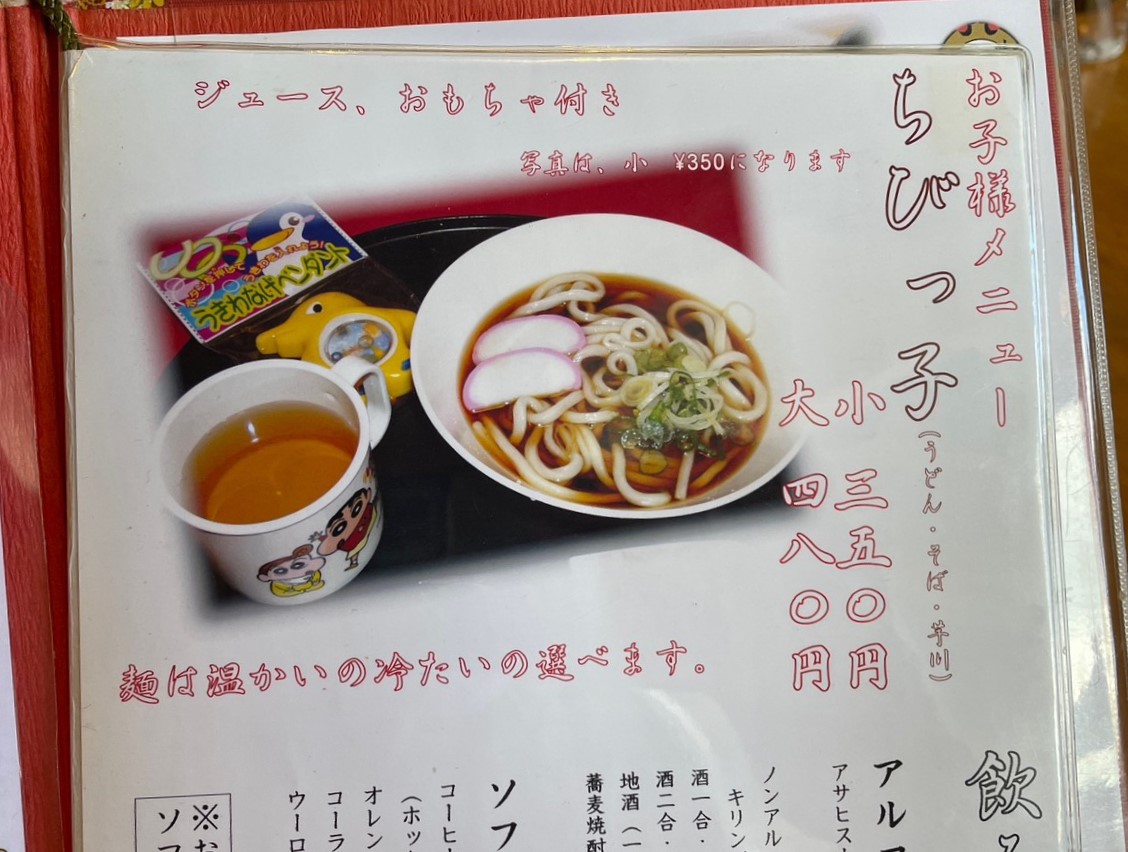 お子様メニュー
ちびっ子
(うどん・そば・芋川)
小 三五〇円
大 四八〇円
ジュース、おもちゃ付き
写真は、小 ¥350になります
うきわなげペンダント
麺は温かいの冷たいの選べます。
飲
アル
アサヒス
ノンアル
キリン
酒一合・
酒二合・
地酒(一
蕎麦焼酎
ソフ
コーヒ
(ホッ
オレン
コーラ
ウーロ
※お
ソフ